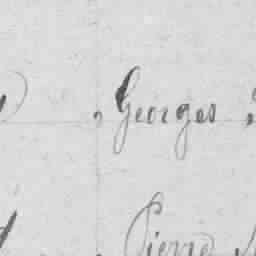 , Georges
Pierre